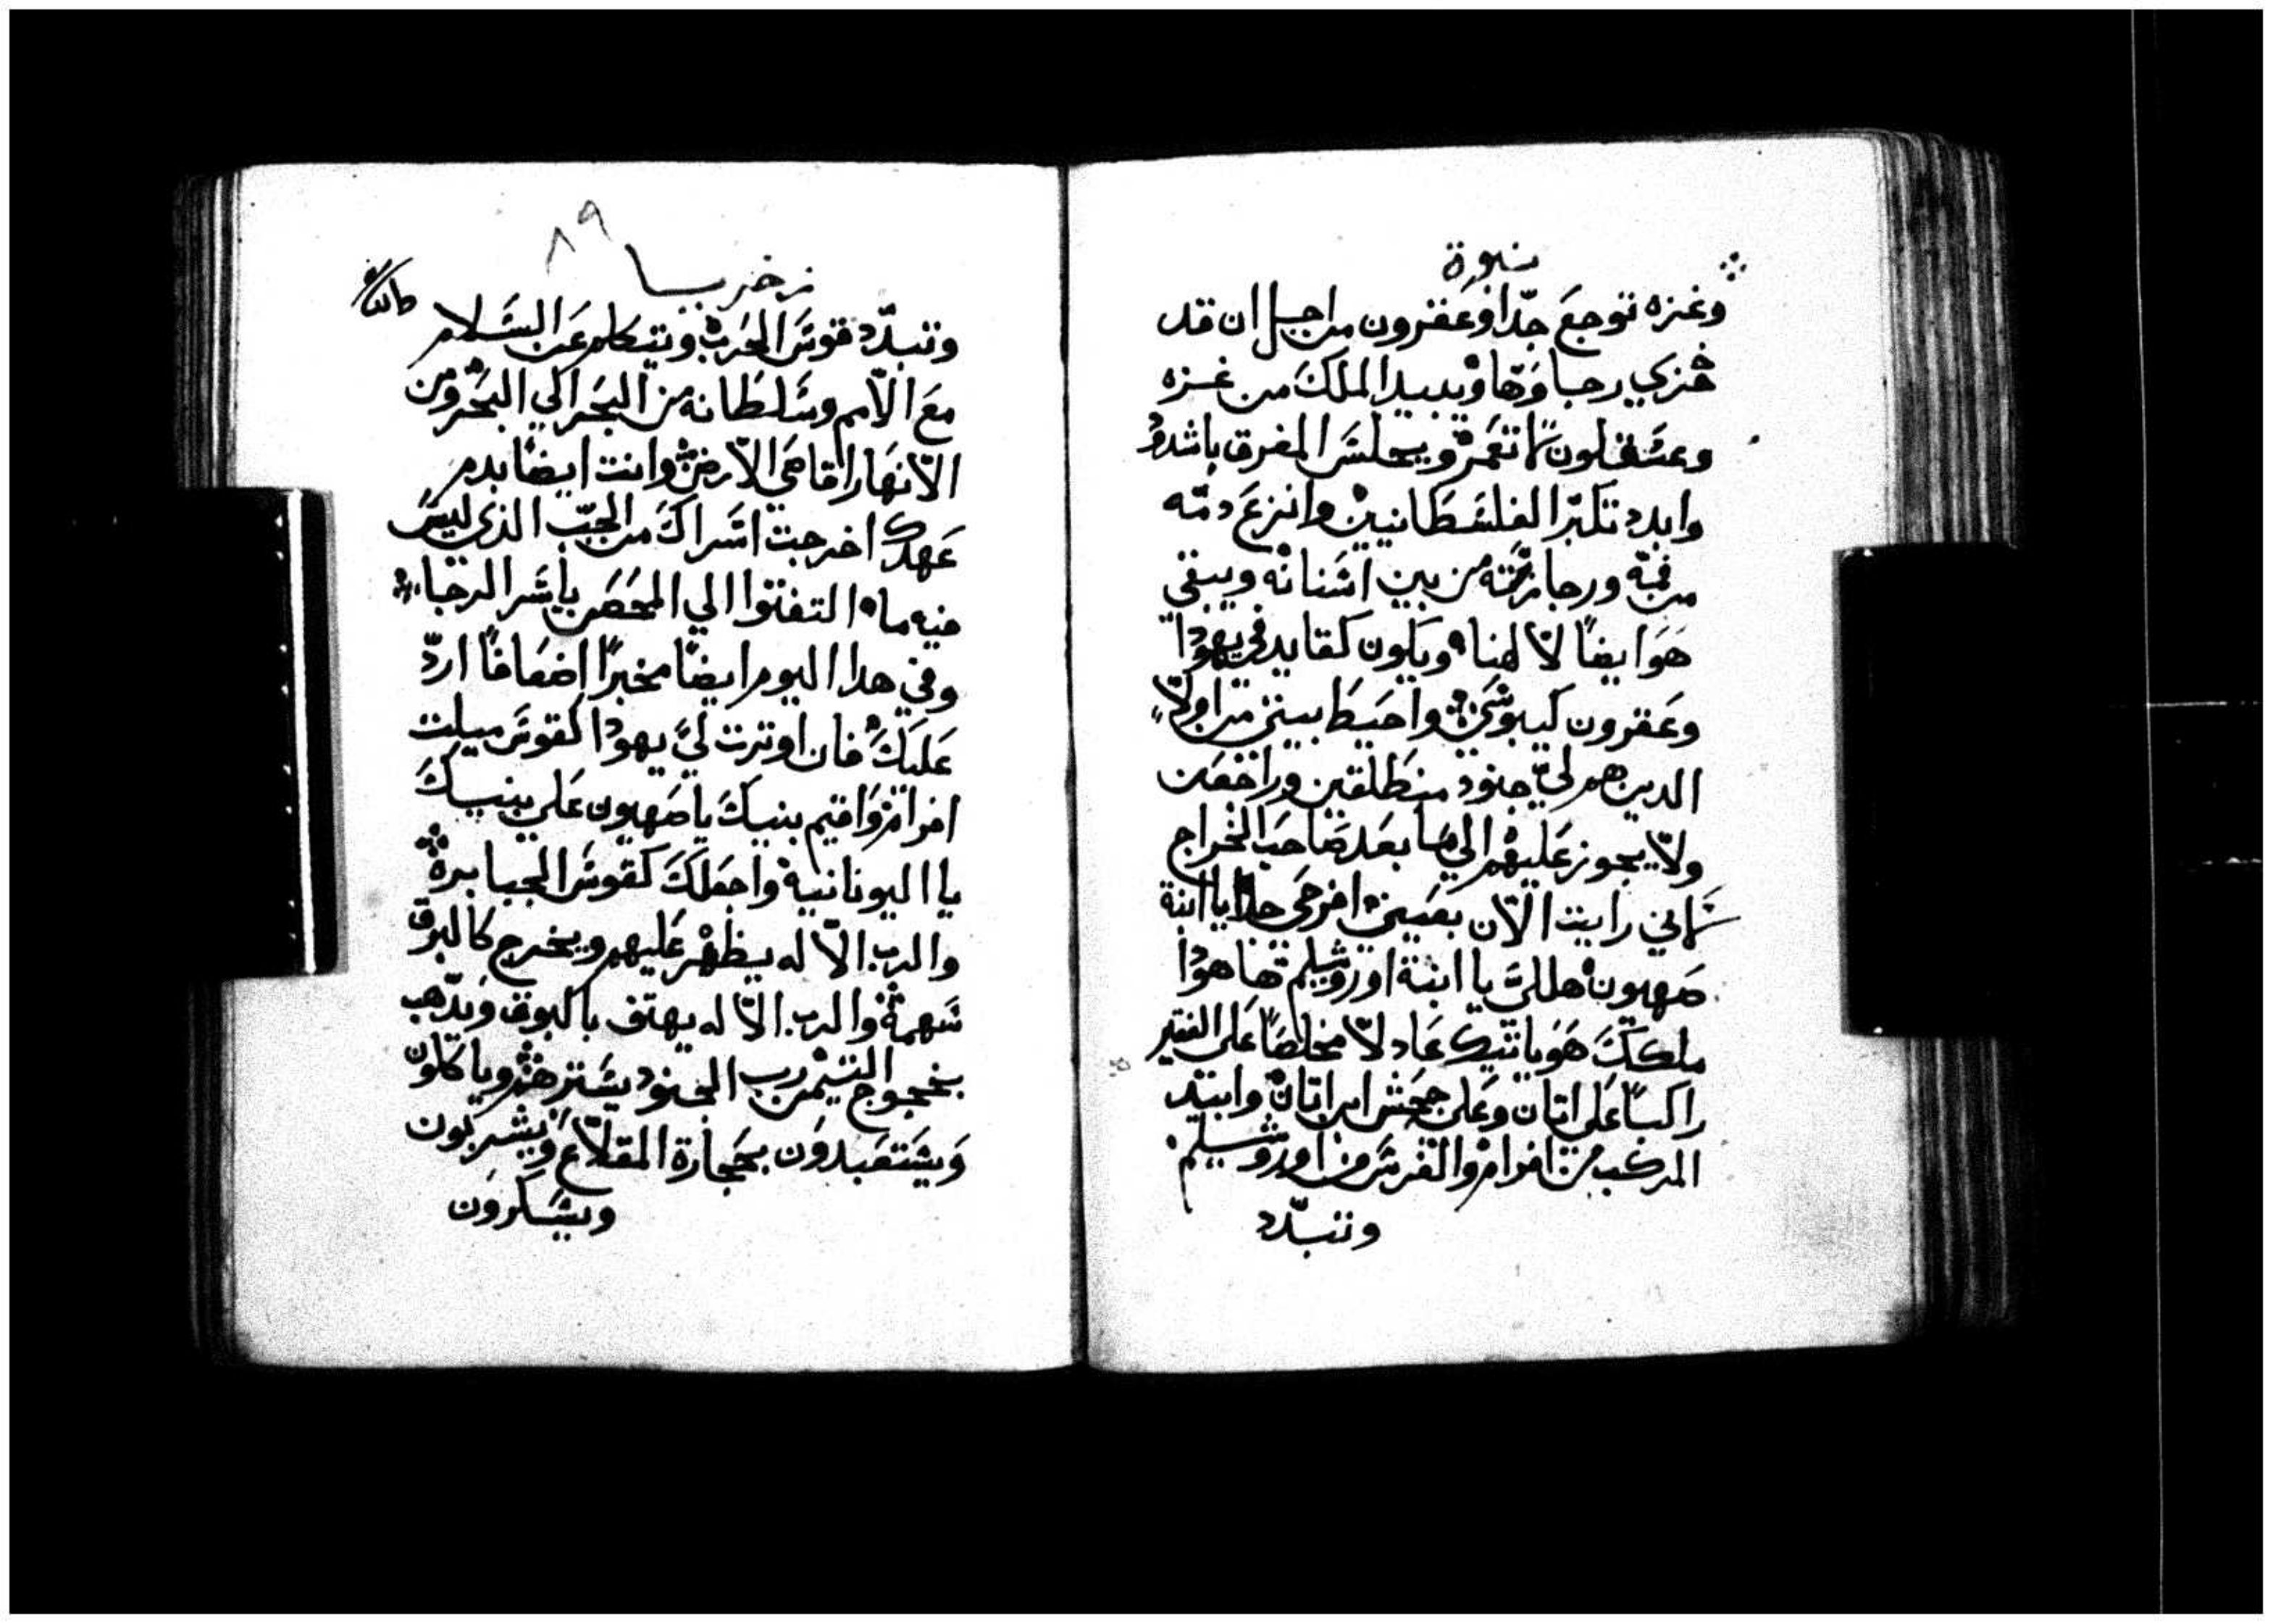 نبوة
وغزه توجع جدّا وعقرون من اجل ان قد
خزي رجاوها ويبيد الملك من غزه
وعسقلون لا تعمر ويجلس المفرق باشدود
وابدد تكبر الفلسطانيين وانزع دمه
من فمه ورجازته من بين اسنانه ويبقي
هو ايضًا لالهنا ويكون كقايد في يهودا
وعقرون كيبوسي واحيط بيتي من اولاٍ
الدين هم لي جنود منطلقين وراجعين
ولا يجوز عليهم الي ما بعد صاحب الخراج
لاني رايت الان بعيني افرحي جدا يا ابنة
صهيون هللي يا ابنة اوروشليم ها هودا
ملكك هو ياتيك عادلا مخلصًا علي الفقير
راكبًا علي اتان وعلي جحش ابن اتان وابيد
المركب من افرام والفرس من اوروشليم
وتتبدّد
زخريا
٨٩
وتتبدّد قوس الحرب ويتكلم عن السلام
مع الامم وسلطانه من البحر الي البحر ومن
الانهار الي اقاصي الارض وانت ايضًا بدم
عهدك اخرجت اسراك من الجبّ الذي ليس
فيه ماء التفتوا الي الحصن يا اسرا الرجاء
وفي هدا اليوم ايضًا مخبرًا اضعافًا اردّ
عليك فان اوترت لي يهودا كقوس ميلت
افرام واقيم بنيك يا صهيون علي بنيك
يا اليونانية واجعلك كقوس الجبابرة
والرب الاله يظهر عليهم ويخرج كالبرق
سهمه والرب الاله يهتف بالبوق ويدهب
بخجوج التيمن رب الجنود يسترهم وياكلون
ويستعبدون بحجارة المقلاع ويشربون
ويسكرون